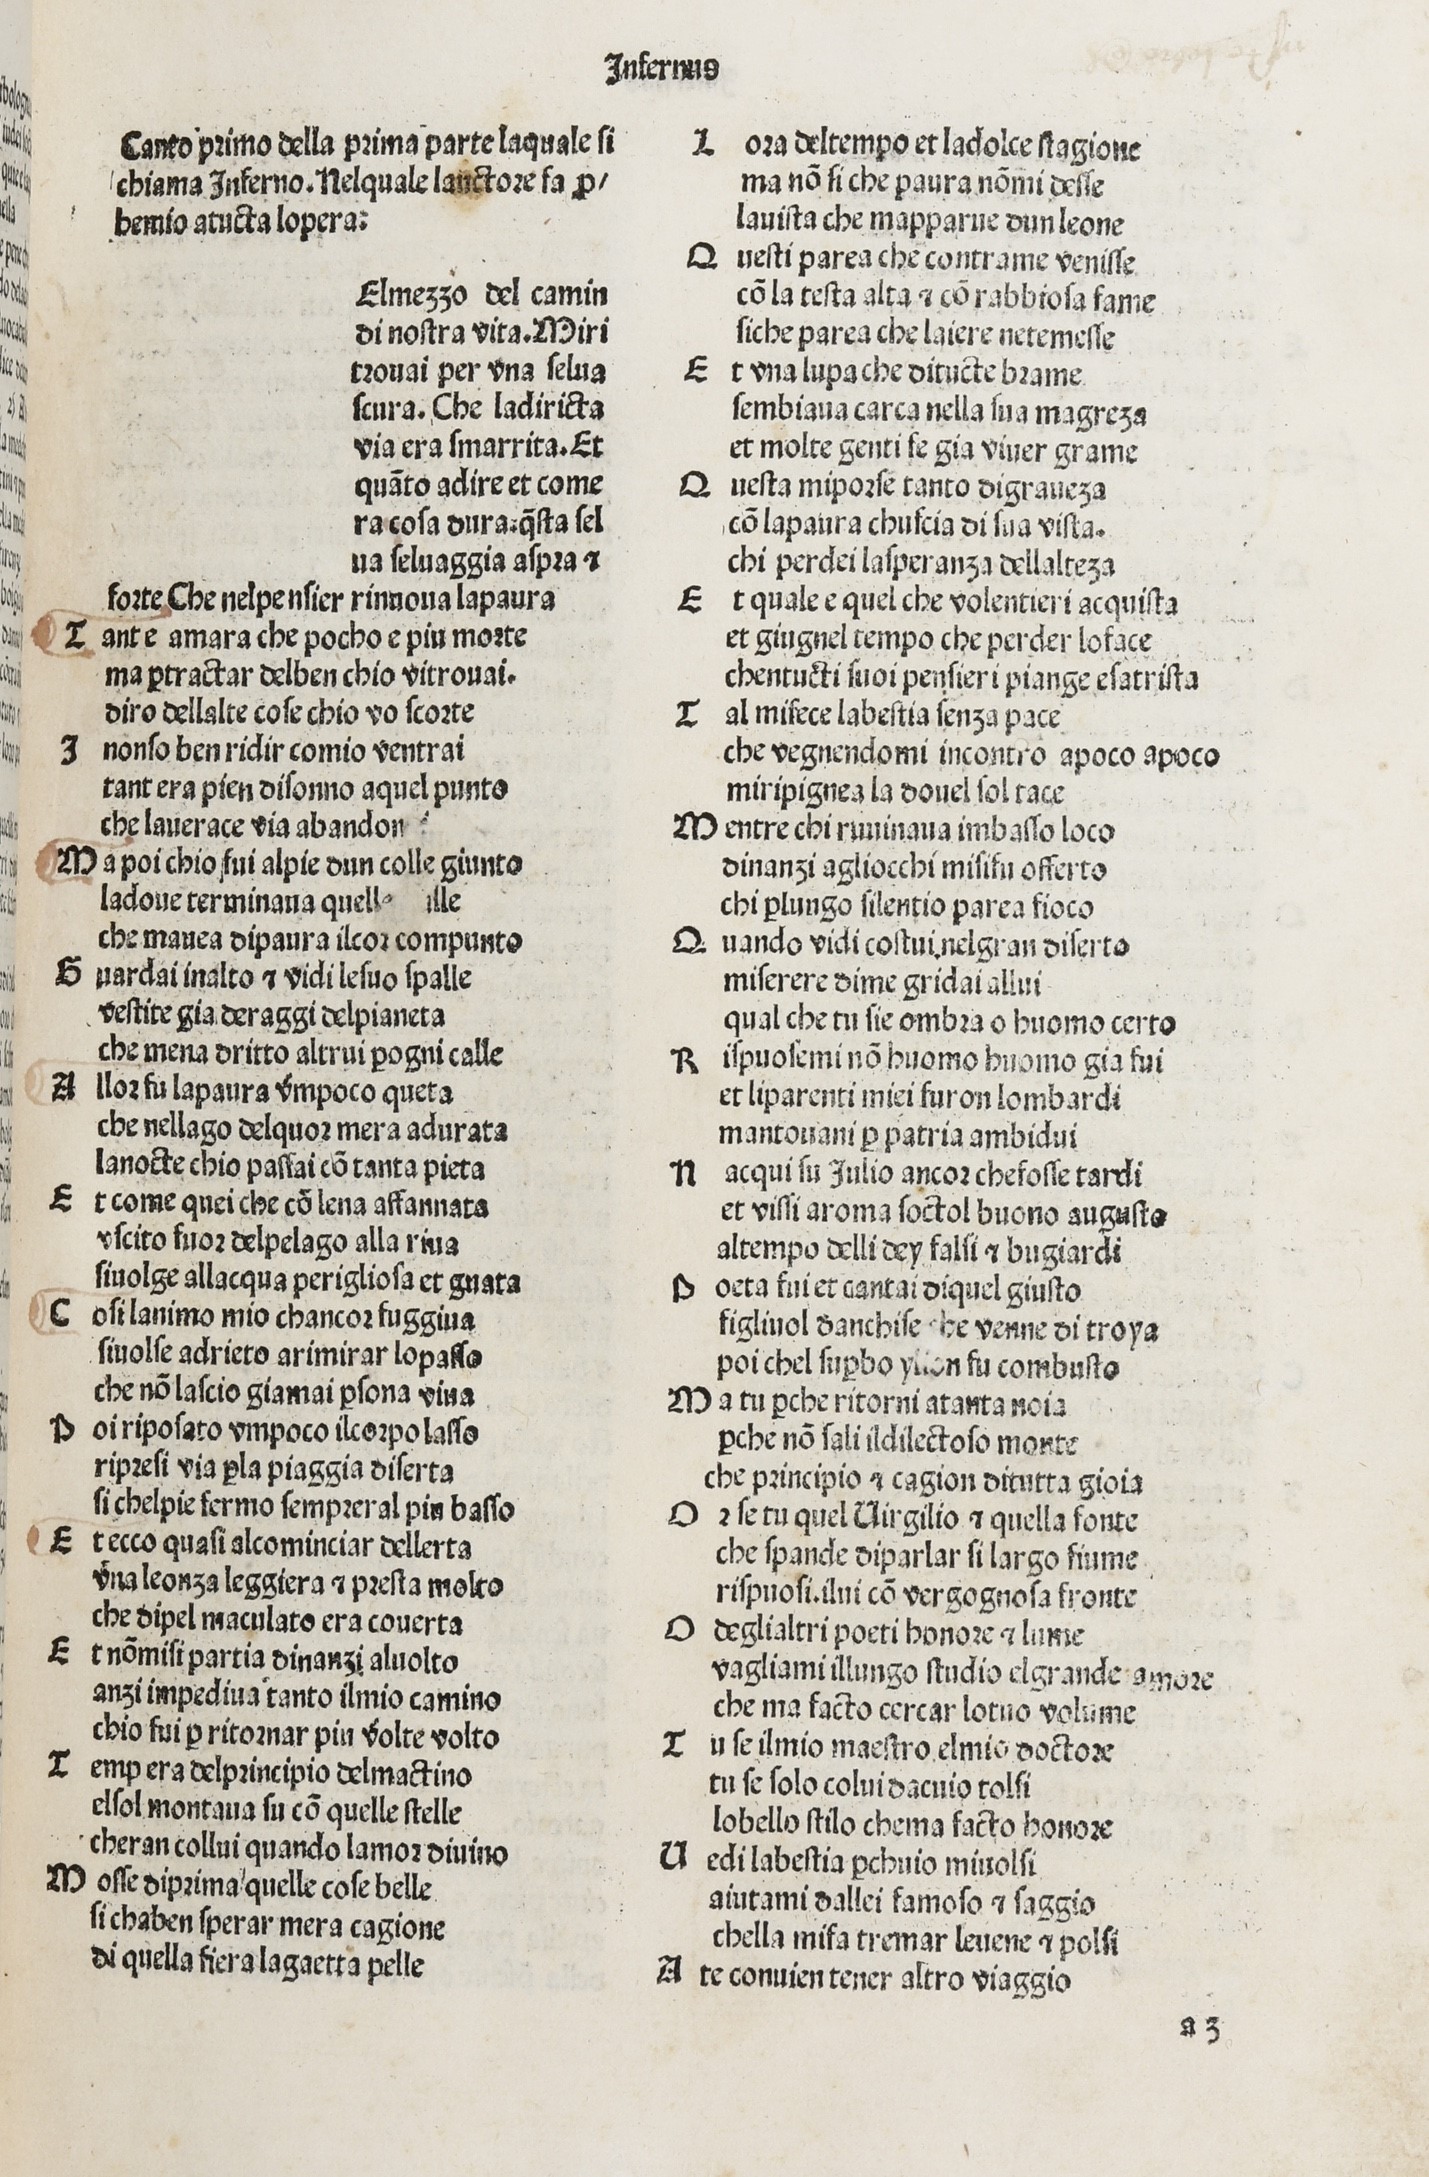 Infernus
Canto primo della prima parte laquale si
chiama Inferno. Nelquale lauctore fa ꝓ/
hemio atucta lopera:
Elmezzo del camin
di nostra vita. Miri
trouai per vna selua
scura. Che ladiricta
via era smarrita. Et
quãto adire et come
ra cosa dura: q̃sta sel
ua seluaggia aspra ⁊
forte Che nelpensier rinnoua lapaura
T ante amara che pocho e piu morte
ma ꝑtractar delben chio vitrouai.
diro dellalte cose chio vo scorte
I nonso ben ridir comio ventrai
tant era pien disonno aquel punto
che lauerace via abandon
M a poi chio fui alpie dun colle giunto
ladoue terminaua quell ille
che mauea dipaura ilcor compunto
G uardai inalto ⁊ vidi lesuo spalle
vestite gia deraggi delpianeta
che mena dritto altrui ꝑogni calle
A llor fu lapaura vmpoco queta
che nellago delquor mera adurata
lanocte chio passai cõ tanta pieta
E t come quei che cõ lena affannata
vscito fuor delpelago alla riua
siuolge allacqua perigliosa et guata
C osi lanimo mio chancor fuggiua
siuolse adrieto arimirar lopasso
che nõ lascio giamai ꝑsona viua
P oi riposato vmpoco ilcorpo lasso
ripresi via ꝑla piaggia diserta
si chelpie fermo sempreral piu basso
E t ecco quasi alcominciar dellerta
vna leonza leggiera ⁊ presta molto
che dipel maculato era couerta
E t nõmisi partia dinanzi aluolto
anzi impediua tanto ilmio camino
chio fui ꝑ ritornar piu volte volto
T emp era delprincipio delmactino
elsol montaua su cõ quelle stelle
cheran collui quando lamor diuino
M osse diprima quelle cose belle
si chaben sperar mera cagione
di quella fiera lagaetta pelle
L ora deltempo et ladolce stagione
ma nõ si che paura nõmi desse
lauista che mapparue dun leone
Q uesti parea che contrame venisse
cõ la testa alta ⁊ cõ rabbiosa fame
siche parea che laiere netemesse
E t vna lupa che ditucte brame
sembiaua carca nella sua magreza
et molte genti fe gia viuer grame
Q uesta miporse tanto digraueza
cõ lapaura chuscia di sua vista.
chi perdei lasperanza dellalteza
E t quale e quel che volentieri acquista
et giugnel tempo che perder loface
chentucti suoi pensieri piange esatrista
T al mifece labestia senza pace
che vegnendomi incontro apoco apoco
miripignea la douel sol tace
M entre chi ruuinaua imbasso loco
dinanzi agliocchi misifu offerto
chi ꝑlungo silentio parea fioco
Q uando vidi costui nelgran diserto
miserere dime gridai allui
qual che tu sie ombra o huomo certo
R ispuosemi nõ huomo huomo gia fui
et liparenti miei furon lombardi
mantouani ꝑ patria ambidui
N acqui su Julio ancor chefosse tardi
et vissi aroma soctol buono augusto
altempo delli dey falsi ⁊ bugiardi
P oeta fui et cantai diquel giusto
figliuol danchise che venne di troya
poi chel suꝑbo ylion fu combusto
M a tu ꝑche ritorni atanta noia
ꝑche nõ sali ildilectoso monte
che principio ⁊ cagion ditutta gioia
O r se tu quel Uirgilio ⁊ quella fonte
che spande diparlar si largo fiume
rispuosi.ilui cõ vergognosa fronte
O deglialtri poeti honore ⁊ lume
vagliami illungo studio elgrande amore
che ma facto cercar lotuo volume
T u se ilmio maestro elmio doctore
tu se solo colui dacuio tolsi
lobello stilo chema facto honore
U edi labestia ꝑchuio miuolsi
aiutami dallei famoso ⁊ saggio
chella mifa tremar leuene ⁊ polsi
A te conuien tener altro viaggio
a 3